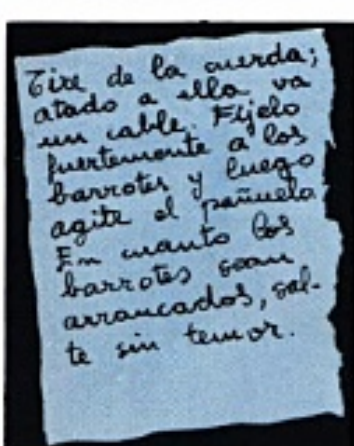 Tire de la cuerda;
atado a ella va
un cable. Fíjelo
fuertemente a los
barrotes y luego
agite el pañuelo
En cuanto los
barrotes sean
arrancados, sal-
te sin temor.